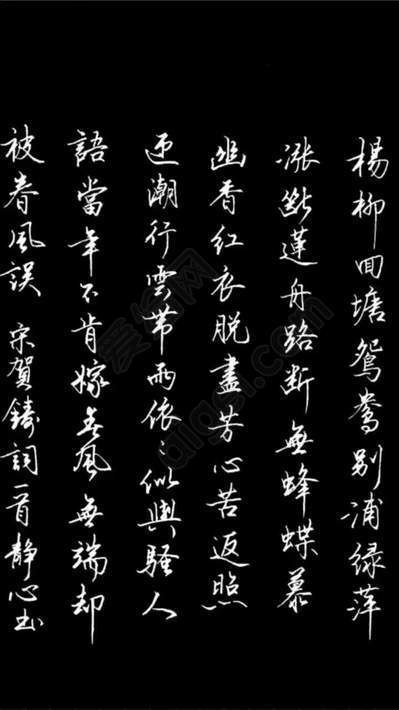 楊柳回塘鴛鴦别浦绿萍
漲斷蓮舟路断無蜂蝶慕
幽香红衣脱盡芳心苦返照
迎潮行雲带雨依:似與騷人
語當年不肯嫁春風無端却
被春風誤 宋賀鑄詞一首静心书
爱给网
aigei.com